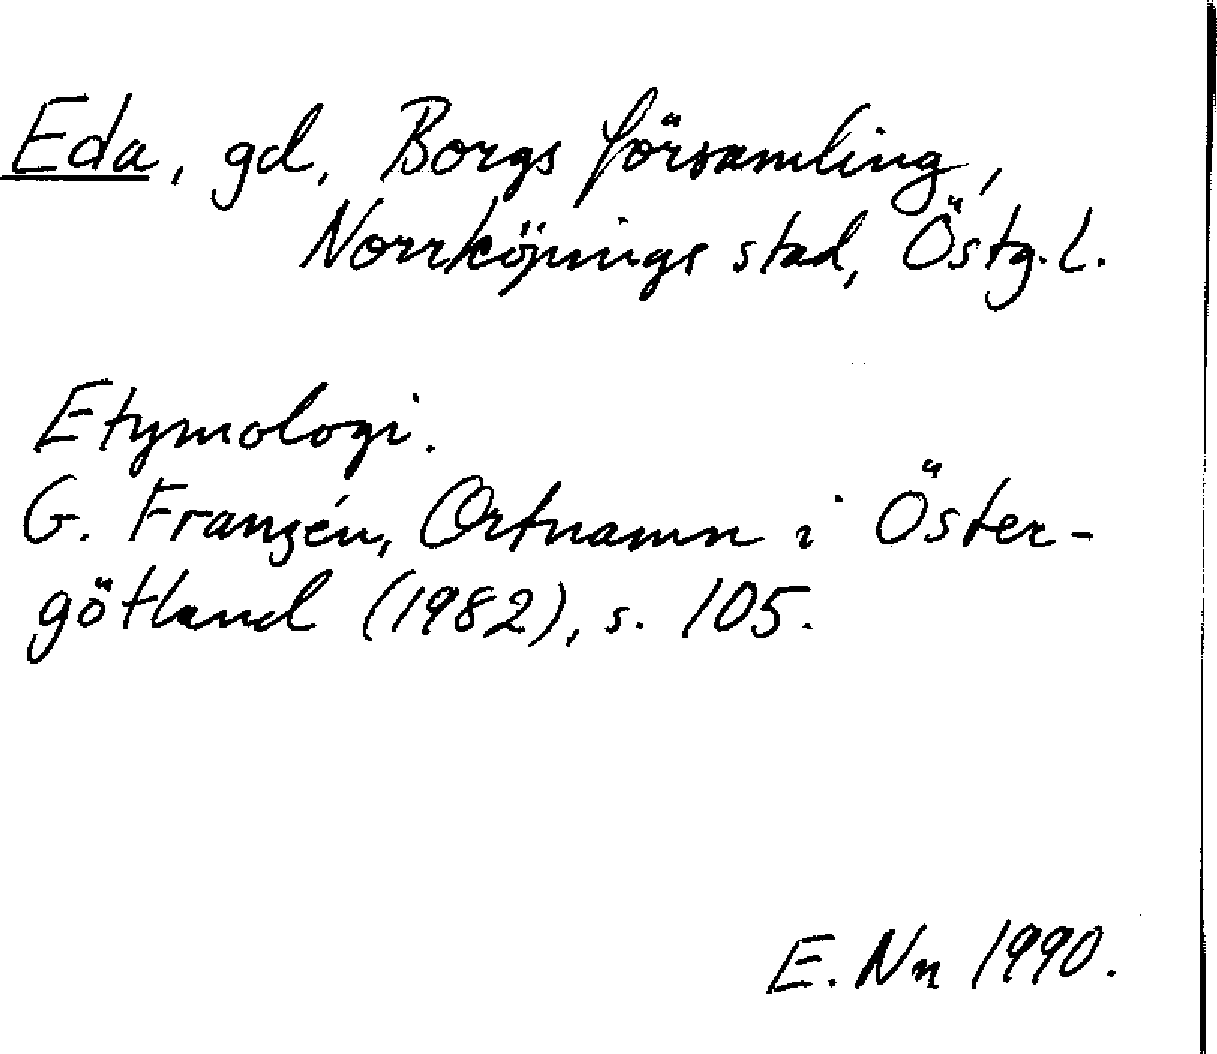 Eda, gd, Borgs församling,
Norrköpings stad, Östg.l.
Etymologi.
G. Franzén, Ortnamn i Öster-
götland (1982), s. 105.
E. Nn 1990.